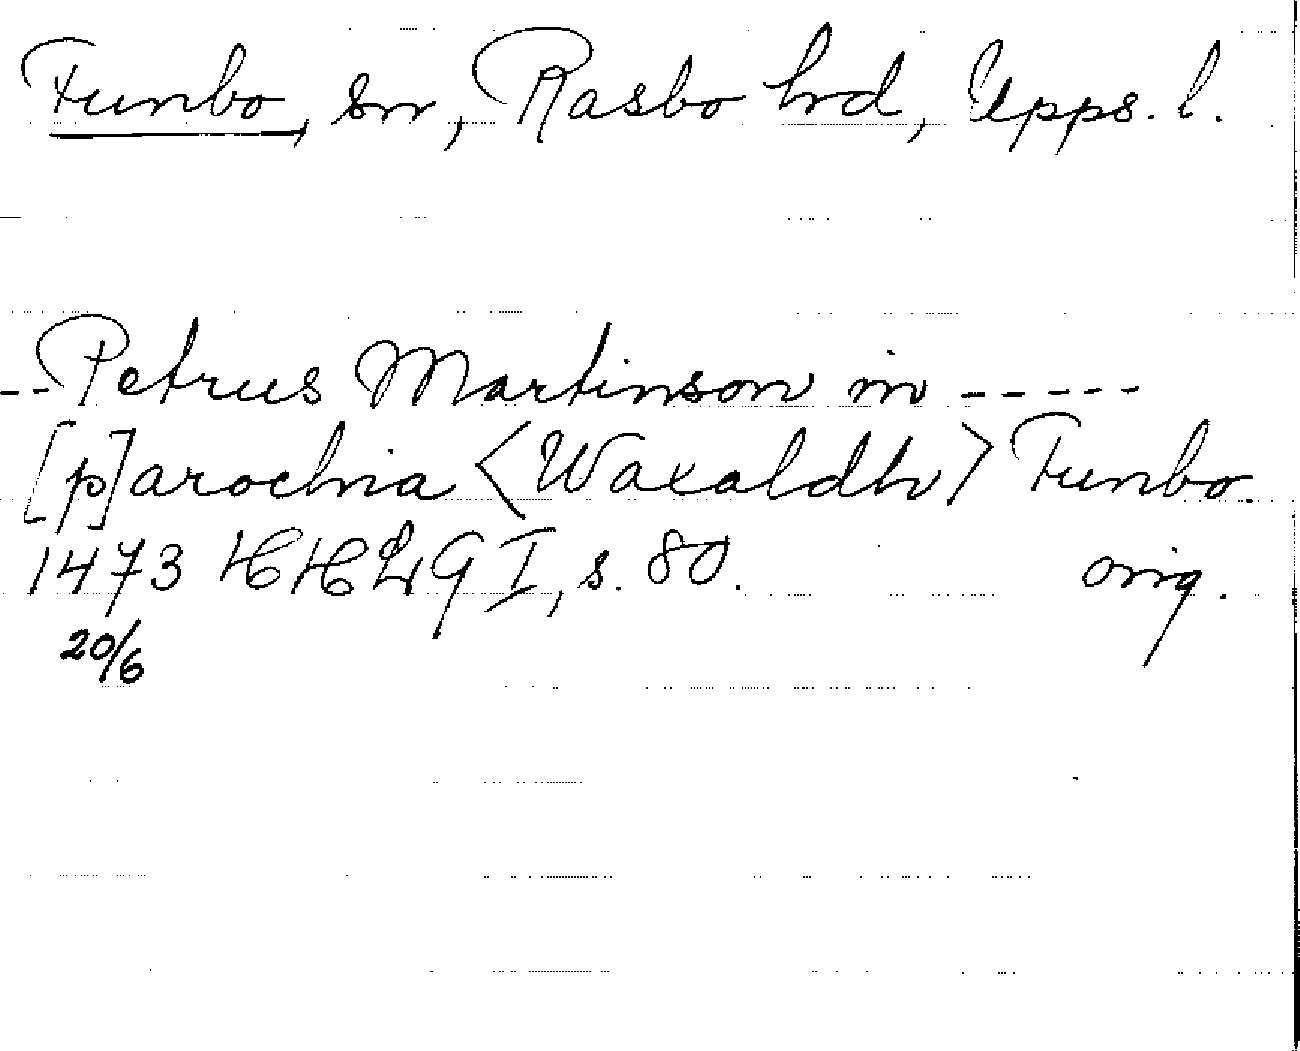 Funbo, sn, Rasbo hrd, Upps. l.
-- Petrus Martinson in -----
[p]arochia <Waxaldh> Funbo.
1473 HHLG I, s. 80. orig.
20/6